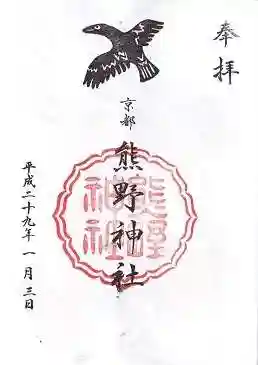 奉拝
京都
熊野神社
熊野
神社
平成二十九年一月三日